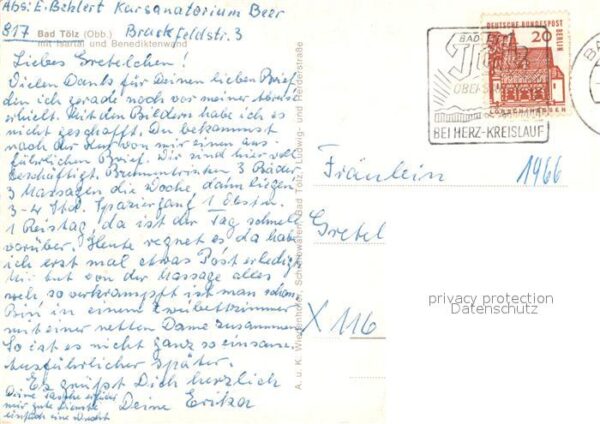 Abs: E. Beklert Kursanatorium Beer
817 Bad Tölz (Obb.) Brackfeldstr. 3
mit Isartal und Benediktenwand
Liebes Gretelchen!
Vielen Dank für Deinen lieben Brief,
den ich gerade noch vor meiner Abreise
erhielt. Mit den Bildern habe ich es
nicht geschafft. Du bekommst
nach der Kur von mir einen aus-
führlichen Brief. Wir sind hier voll
beschäftigt. Brunnentrinken 3 Bäder
3 Massagen die Woche, dann liegen
3-4 Std. Spaziergang 1 Obstu.
1 Reistag, da ist der Tag schnell
vorüber. Heute regnet es da habe
ich erst mal etwas Post erledigt
Mir tut von der Massage alles
weh, so verkrampft ist man schon.
Bin in einem Zweibettzimmer
mit einer netten Dame zusammen.
So ist es nicht ganz so einsam.
Ausführlicher später.
Es grüßst Dich herzlich
Deine Erika
Deine Tasche
mir gute Dienste
einfach eine Wucht
A. u. K. Wiedenhofer, Bad Tölz, Ludwig- und Herderstraße
BAD
Tölz
BEI HERZ-KREISLAUF
DEUTSCHE BUNDESPOST
BERLIN
20
Fräulein
1966
Gretel
X 116
privacy protection
Datenschutz